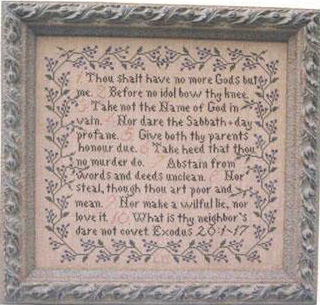 1. Thou shalt have no more Gods but
me. 2. Before no idol bow thy knee.
3. Take not the Name of God in
vain. 4. Nor dare the Sabbath day
profane. 5. Give both thy parents
honour due. 6. Take heed that thou
no murder do. 7. Abstain from
words and deeds unclean. 8. Nor
steal, though thou art poor and
mean. 9. Nor make a wilful lie, nor
love it. 10. What is thy neighbor's
dare not covet. Exodus 20:1-17